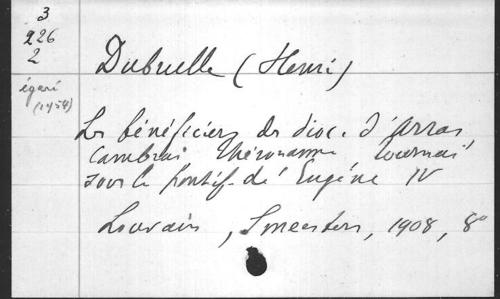 3
226
2
égaré
(1954)
Dubrulle (Henri)
Les bénéficiers des dioc. d'Arras
Cambrai Thérouanne Tournai
sous le pontif. de Eugène IV
Louvain, Smeesters, 1908, 8°